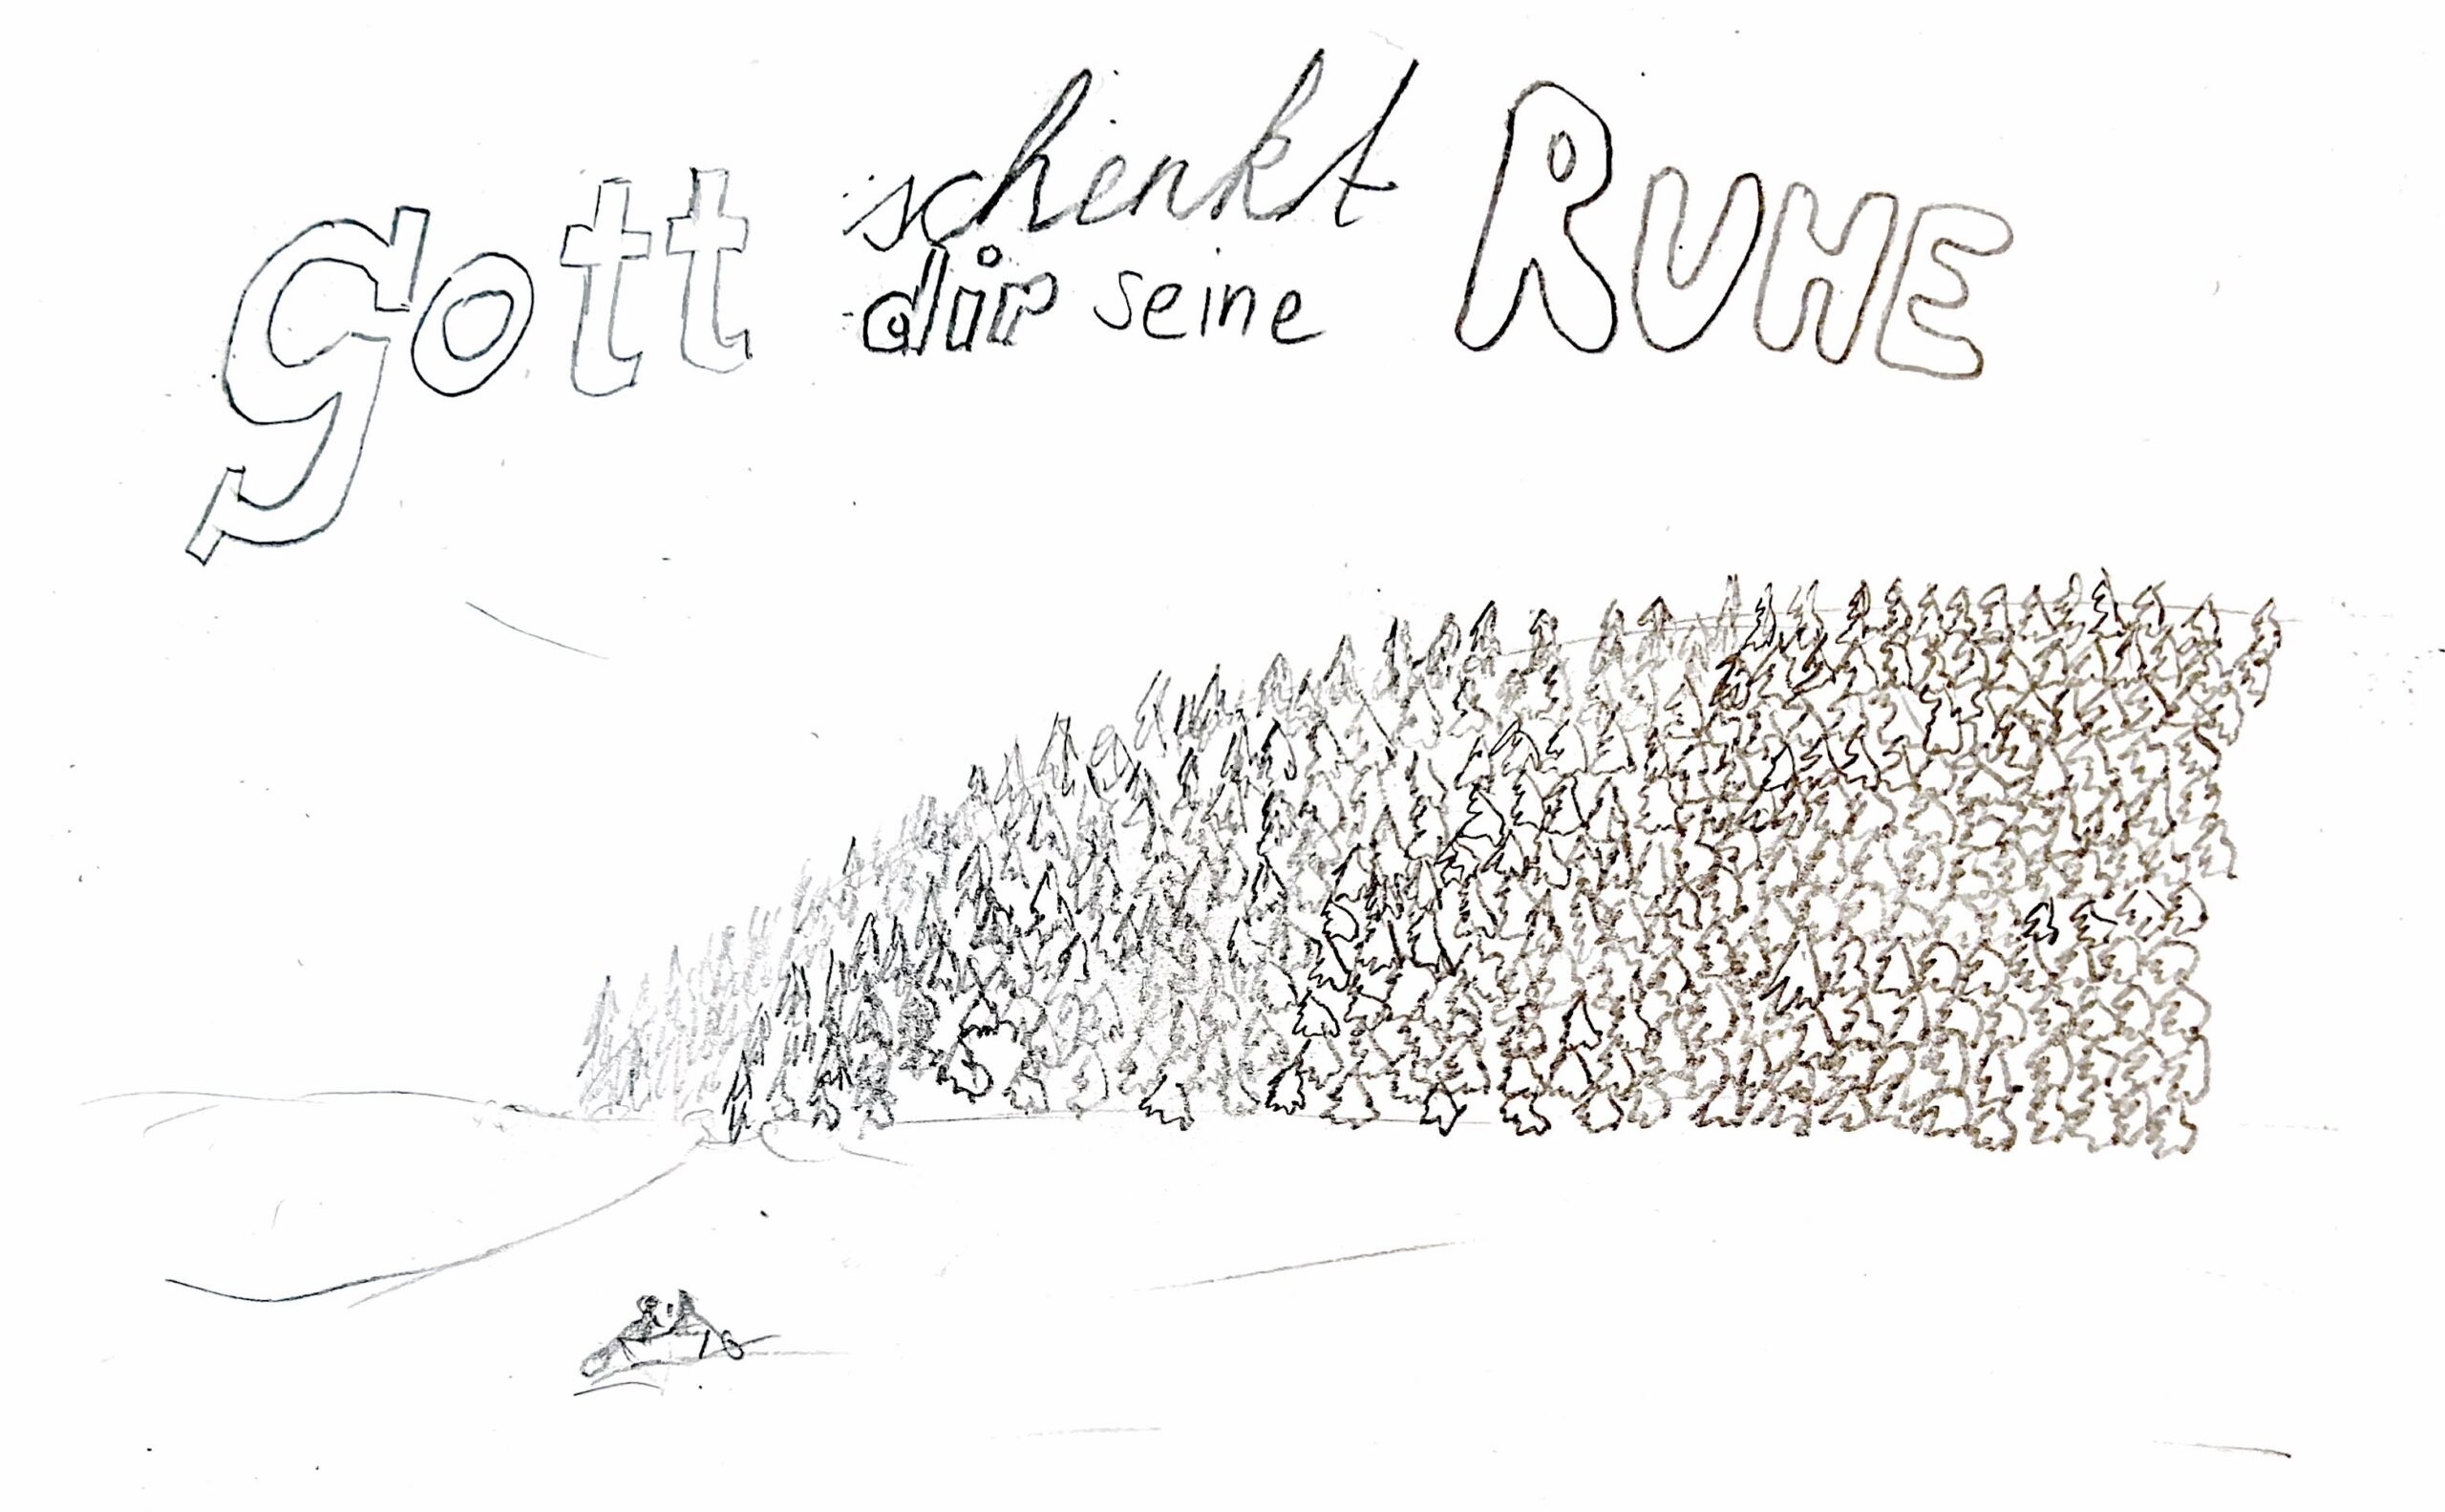 Gott schenkt RUHE
dir seine